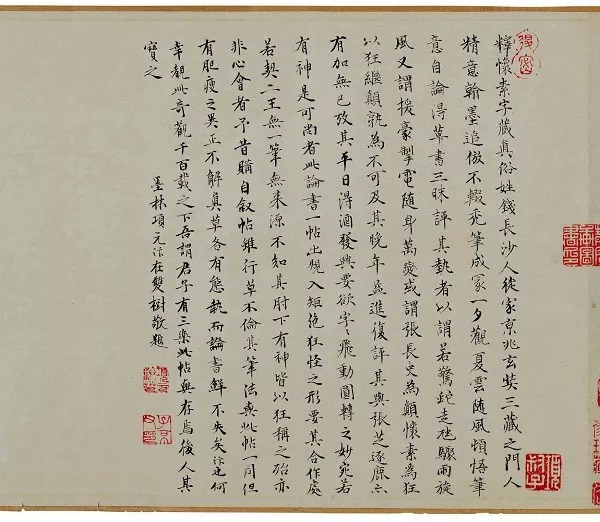 釋懷素字藏真俗姓錢長沙人徙家京兆玄奘三藏之門人
精意翰墨追倣不輟禿筆成冢一夕觀夏雲隨風頓悟筆
意自論得草書三昧評其執者以謂若驚蛇走虺驟雨旋
風又謂援豪掣電隨身萬變或謂張長史為顛懷素為狂
以狂繼顛孰為不可及其晚年益進復評其與張芝逐鹿亡
有加無已故其平日得酒發興要欲字〻飛動圓轉之妙宛若
有神是可尚者此論書一帖出規入矩絶狂怪之形要其合作處
若契二王無一筆無來源不知其肘下有神皆以狂稱之殆亦
非心會者予昔購自敘帖雜行草不倫其筆法與此帖一同但
有肥瘦之異正不解真草各有態執而論書鮮不失矣汴也何
幸觀此奇觀千百載之下吾謂君子有三樂此帖與存焉後人其
寶之
墨林項元汴在雙樹敬題
項元汴印
子京父印
項叔子